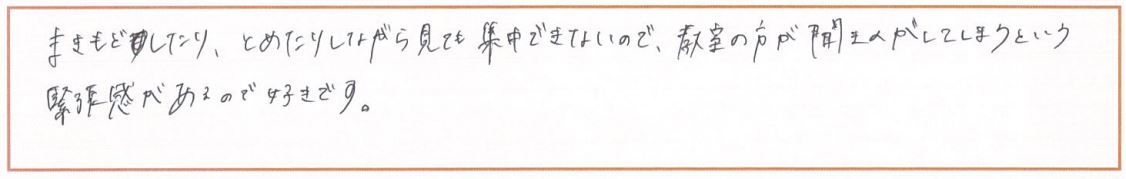 まきもどしたり、とめたりしながら見ても集中できないので、教室の方が聞きのがしてしまうという
緊張感があるので好きです。